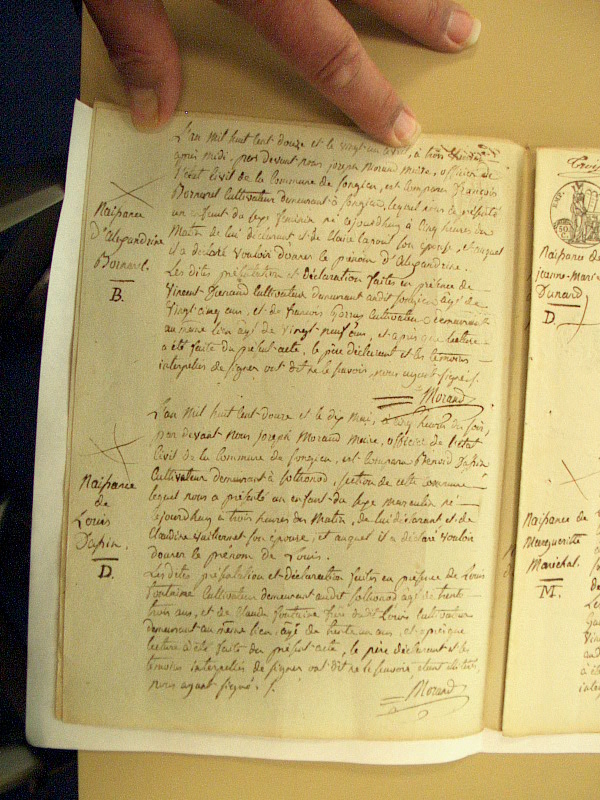 L'an mil huit cent douze et le vingt un avril, à trois heures
après midi, par devant nous joseph Morand Maire, officier de
l'état Civil de la Commune de songieu, est comparu françois
Bornarel Cultivateur demeurant à songieu, lequel nous a présenté
un enfant du sexe féminin né ajourdhuy à Cinq heures du
Matin de lui déclarant et de Claire son épouse, et auquel
il a déclaré vouloir donner le prénom d'Alexandrine.
Les dites présentation et Déclaration faites en présence de
Vincent Cultivateur demeurant audit songieu âgé de
Vingt cinq ans, et de françois Cultivateur demeurant
au même lieu âgé de Vingt neuf ans, et après que lecture
a été faite du présent acte, le père déclarant et les témoins
interpellés de signer ont dit ne le savoir, nous ayant signé
Morand
Naissance
D'Alexandrine
Bornarel.
B.
L'an mil huit cent douze et le dix mai, à heures du soir,
par devant Nous joseph Morand maire, officier de l'état
Civil de la Commune de songieu, est Comparu Benoid Japin
Cultivateur demeurant à sothonod, section de cette commune
lequel nous a présenté un enfant du sexe masculin né
ajourdhuy à trois heures du Matin, de lui déclarant et de
Claudine son épouse, et auquel il a déclaré vouloir
donner le prénom de Louis.
Les dites présentation et déclaration faites en présence de Louis
fontaine Cultivateur demeurant audit sothonod âgé de trente
trois ans, et de Claude fontaine dudit Louis Cultivateur
demeurant au même lieu, âgé de trente un ans, et après que
lecture a été faite du présent acte, le père déclarant et les
témoins interpellés de signer ont dit ne le savoir,
nous ayant signé
Morand
Naissance
de
Louis
Japin.
D.
Naissance de
jeanne-Marie
Dunand
D.
Naissance de
Marguerite
Maréchal.
M.